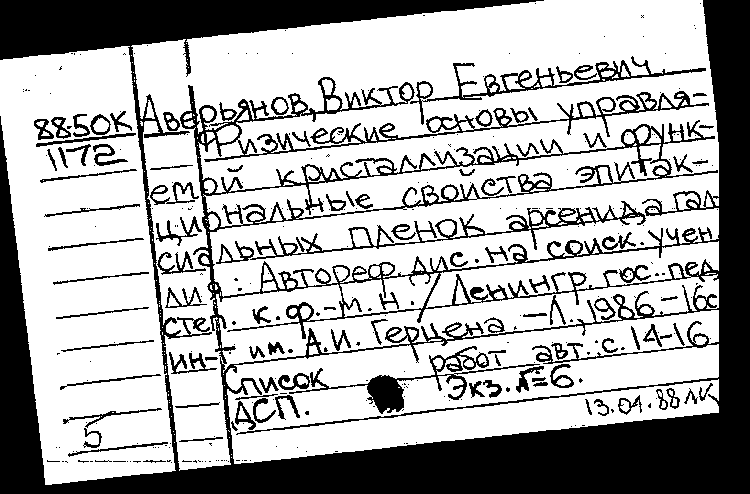 88-50К Аверьянов, Виктор Евгеньевич.
1172 Физические основы управля=
емой кристаллизации и функ-
циональные свойства эпитак-
сиальных пленок арсенида гал
лия: Автореф. дис. на соиск. учен.
степ. к. ф.-м. н. / Ленингр. гос. пед.
ин-т им. А.И. Герцена. - Л., 1986. - 16с
Список работ авт.: с. 14-16
ДСП. Экз. №=6.
5 13.01.88